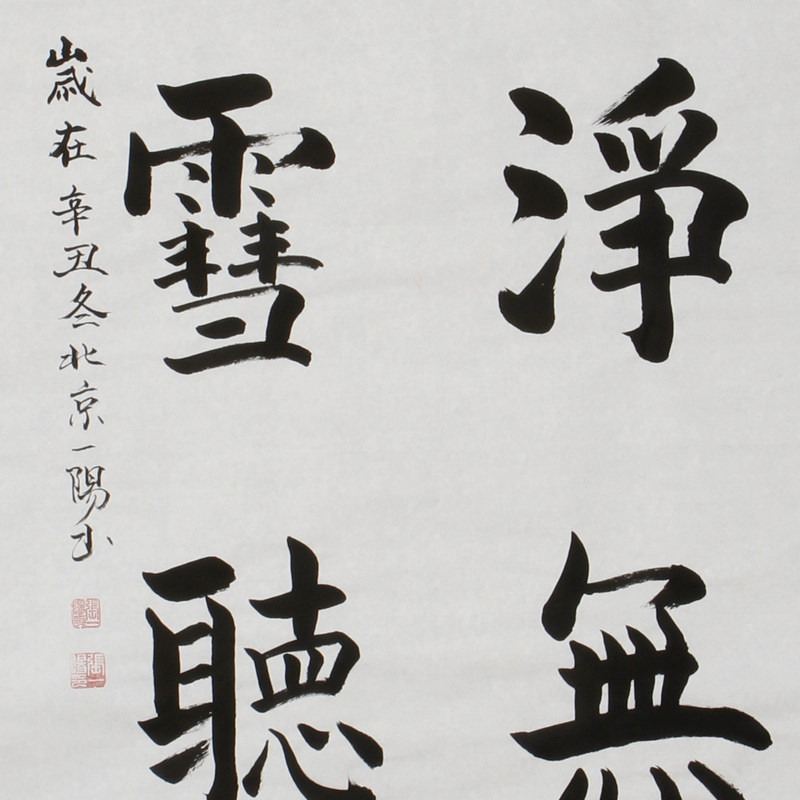 淨無
雪聽
歲在辛丑冬北京一陽書